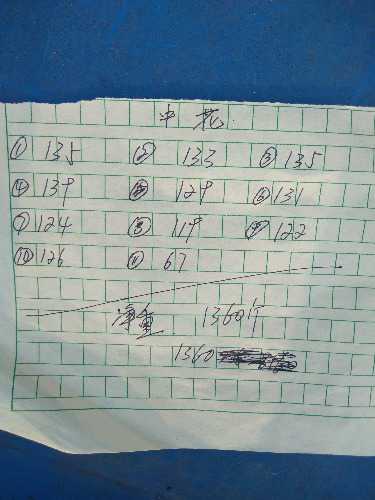 中花
① 135 ② 133 ③ 135
④ 139 ⑤ 129 ⑥ 131
⑦ 124 ⑧ 119 ⑨ 122
⑩ 126 ⑪ 67
净重 1360斤
1360